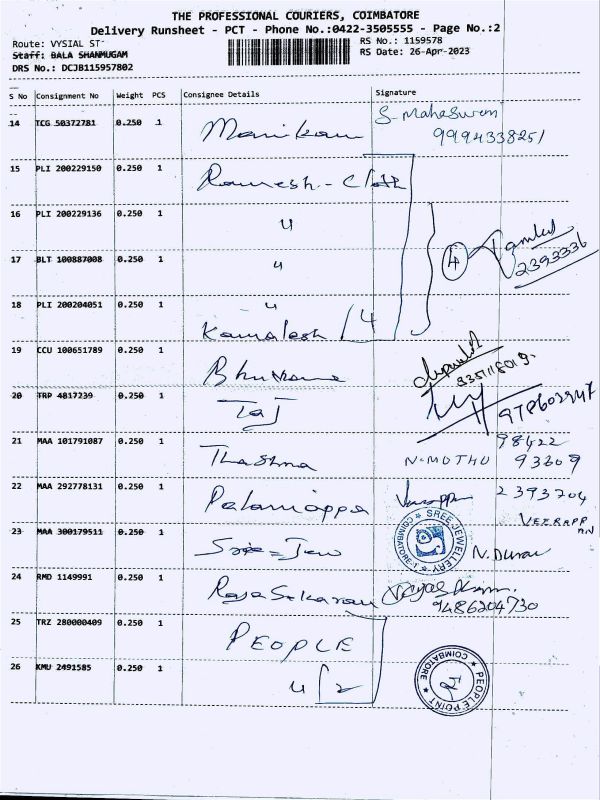 THE PROFESSIONAL COURIERS, COIMBATORE
Delivery Runsheet - PCT - Phone No.:0422-3505555 - Page No.:2
Route: VYSIAL ST
RS No.: 1159578
Staff: BALA SHANMUGAM
RS Date: 26-Apr-2023
DRS No.: DCJB115957802
S No Consignment No Weight PCS Consignee Details Signature
14 TCG 50372781 0.250 1 Manikam S. Maheswari
9994338251
15 PLI 200229150 0.250 1 Ramesh - Cloth
16 PLI 200229136 0.250 1 "
17 BLT 100887008 0.250 1 " 4 2393336
18 PLI 200204051 0.250 1 "
Kamalesh / 4
19 CCU 100651789 0.250 1
20 TRP 4817239 0.250 1 Taj
21 MAA 101791087 0.250 1 98422
N. MUTHU 93609
22 MAA 292778131 0.250 1 Palaniappa 2393704
VEERAPP
AN
23 MAA 300179511 0.250 1 Sree - Jew SREE JEWELLERY COIMBATORE-1 N. Durai
24 RMD 1149991 0.250 1 Raja Sekaran
9486204730
25 TRZ 280000409 0.250 1 PEOPLE
26 KMU 2491585 0.250 1 " 2 PEOPLE POINT COIMBATORE